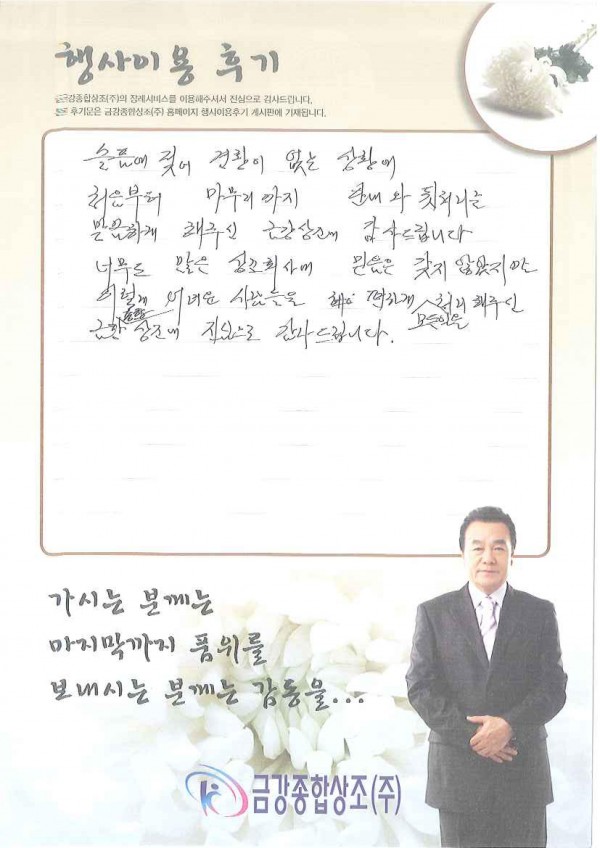 행사이용 후기
금강종합상조(주)의 장례서비스를 이용해주셔서 진심으로 감사드립니다.
본 후기문은 금강종합상조(주) 홈페이지 행사이용후기 게시판에 기재됩니다.
슬픔에 젖어 경황이 없는 상황에
처음부터 마무리까지 안내와 뒷처리를
말끔하게 해주신 금강상조에 감사드립니다
너무도 많은 상조회사에 믿음은 갖지 않았지만
이렇게 어려운 사람들을 처리해주신
모든일을
금강 상조에 진심으로 감사드립니다.
가시는 분께는
마지막까지 품위를
보내시는 분께는 감동을...
금강종합상조(주)